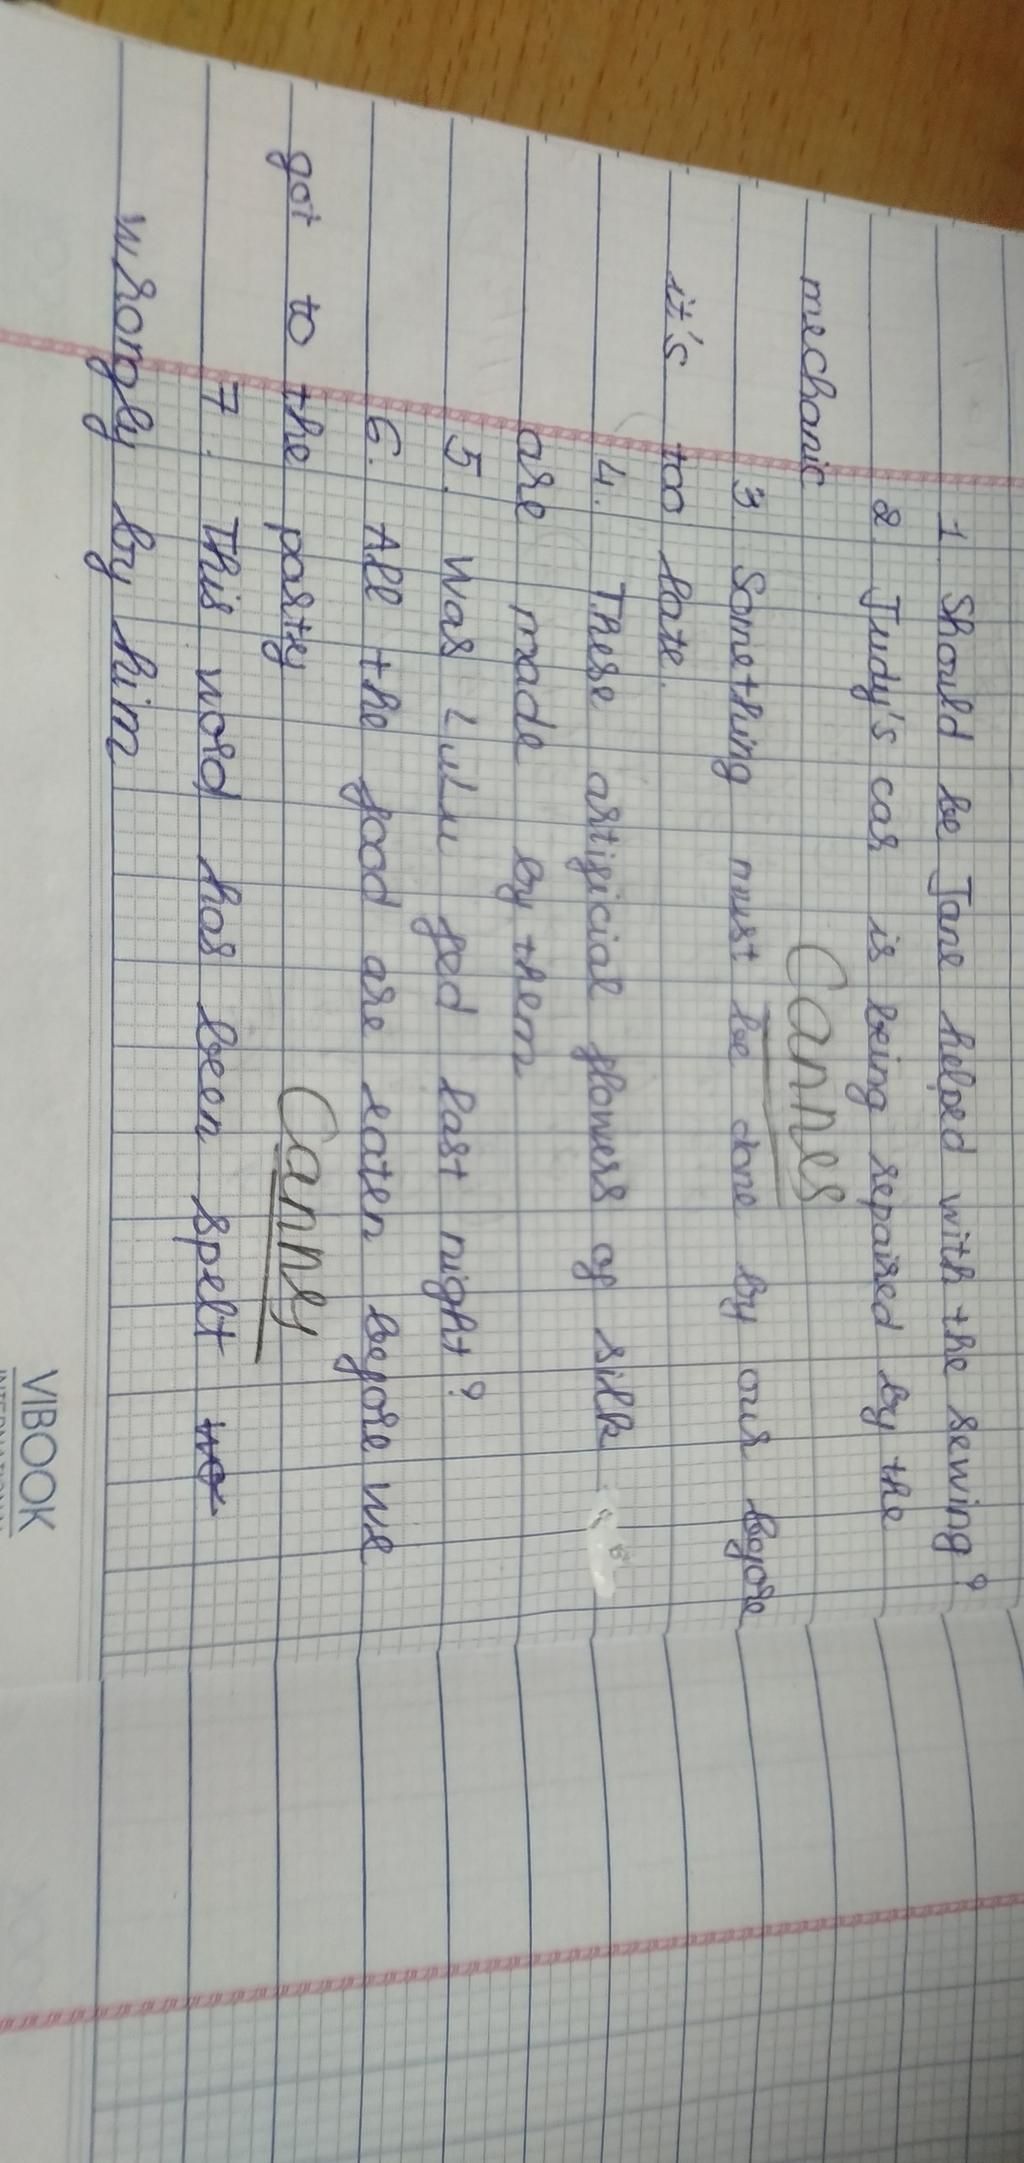 1. Should be Jane helped with the sewing?
2. Judy's car is being repaired by the
mechanic
Cannes
3. Something must be done by our before
it's too late.
4. These artificial flowers of silk
are made by them
5. Was Lulu fed last night?
6. All the food are eaten before we
got to the party
Canny
7. This word has been spelt
wrongly by him
VIBOOK